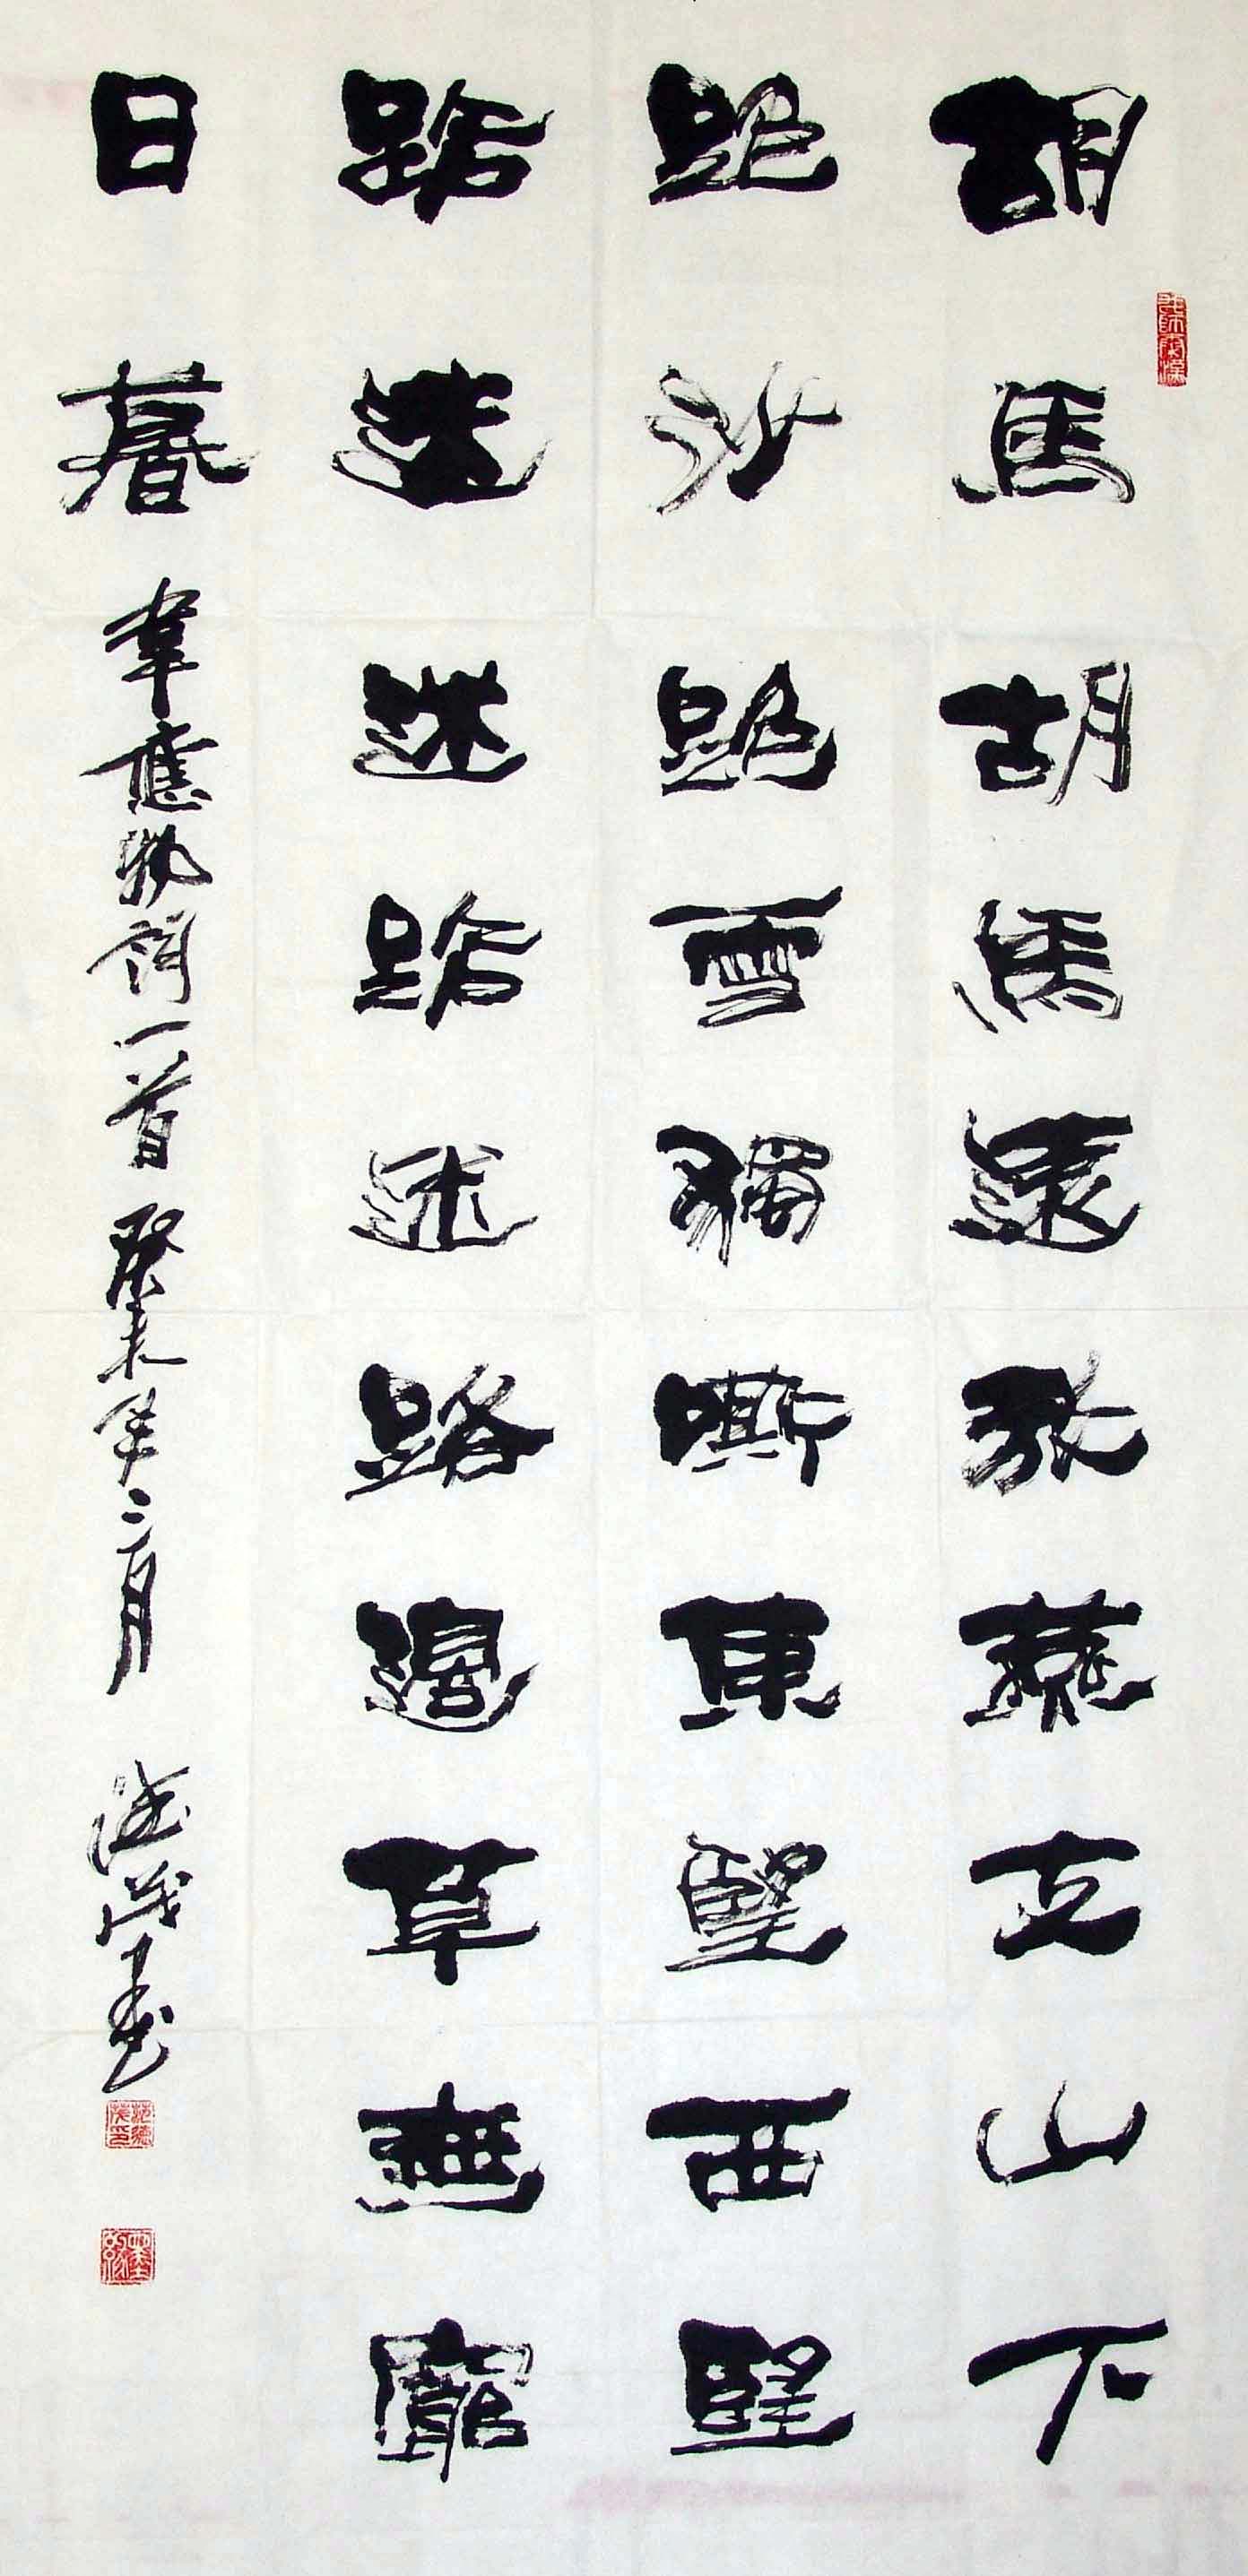 胡馬胡馬遠放燕支山下
跑沙跑雪獨嘶東望西望
路迷迷路迷路邊草無窮
日暮 韋應物詞一首 癸未年二月